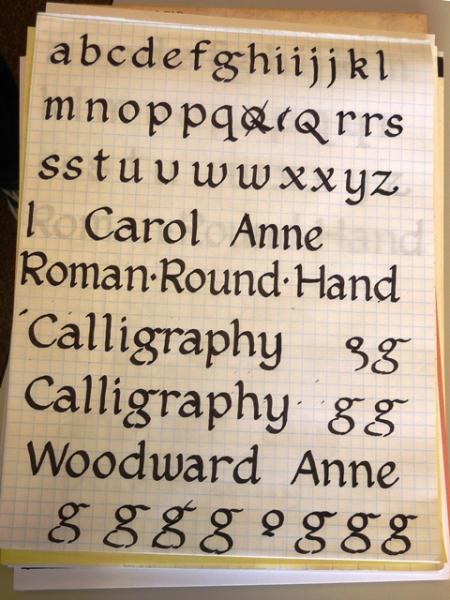 a b c d e f g h i i j j k l
m n o p p q Q r r s
s s t u v w w x x y z
l Carol Anne
Roman·Round·Hand
Calligraphy g g
Calligraphy g g
Woodward Anne
g g g g g g g